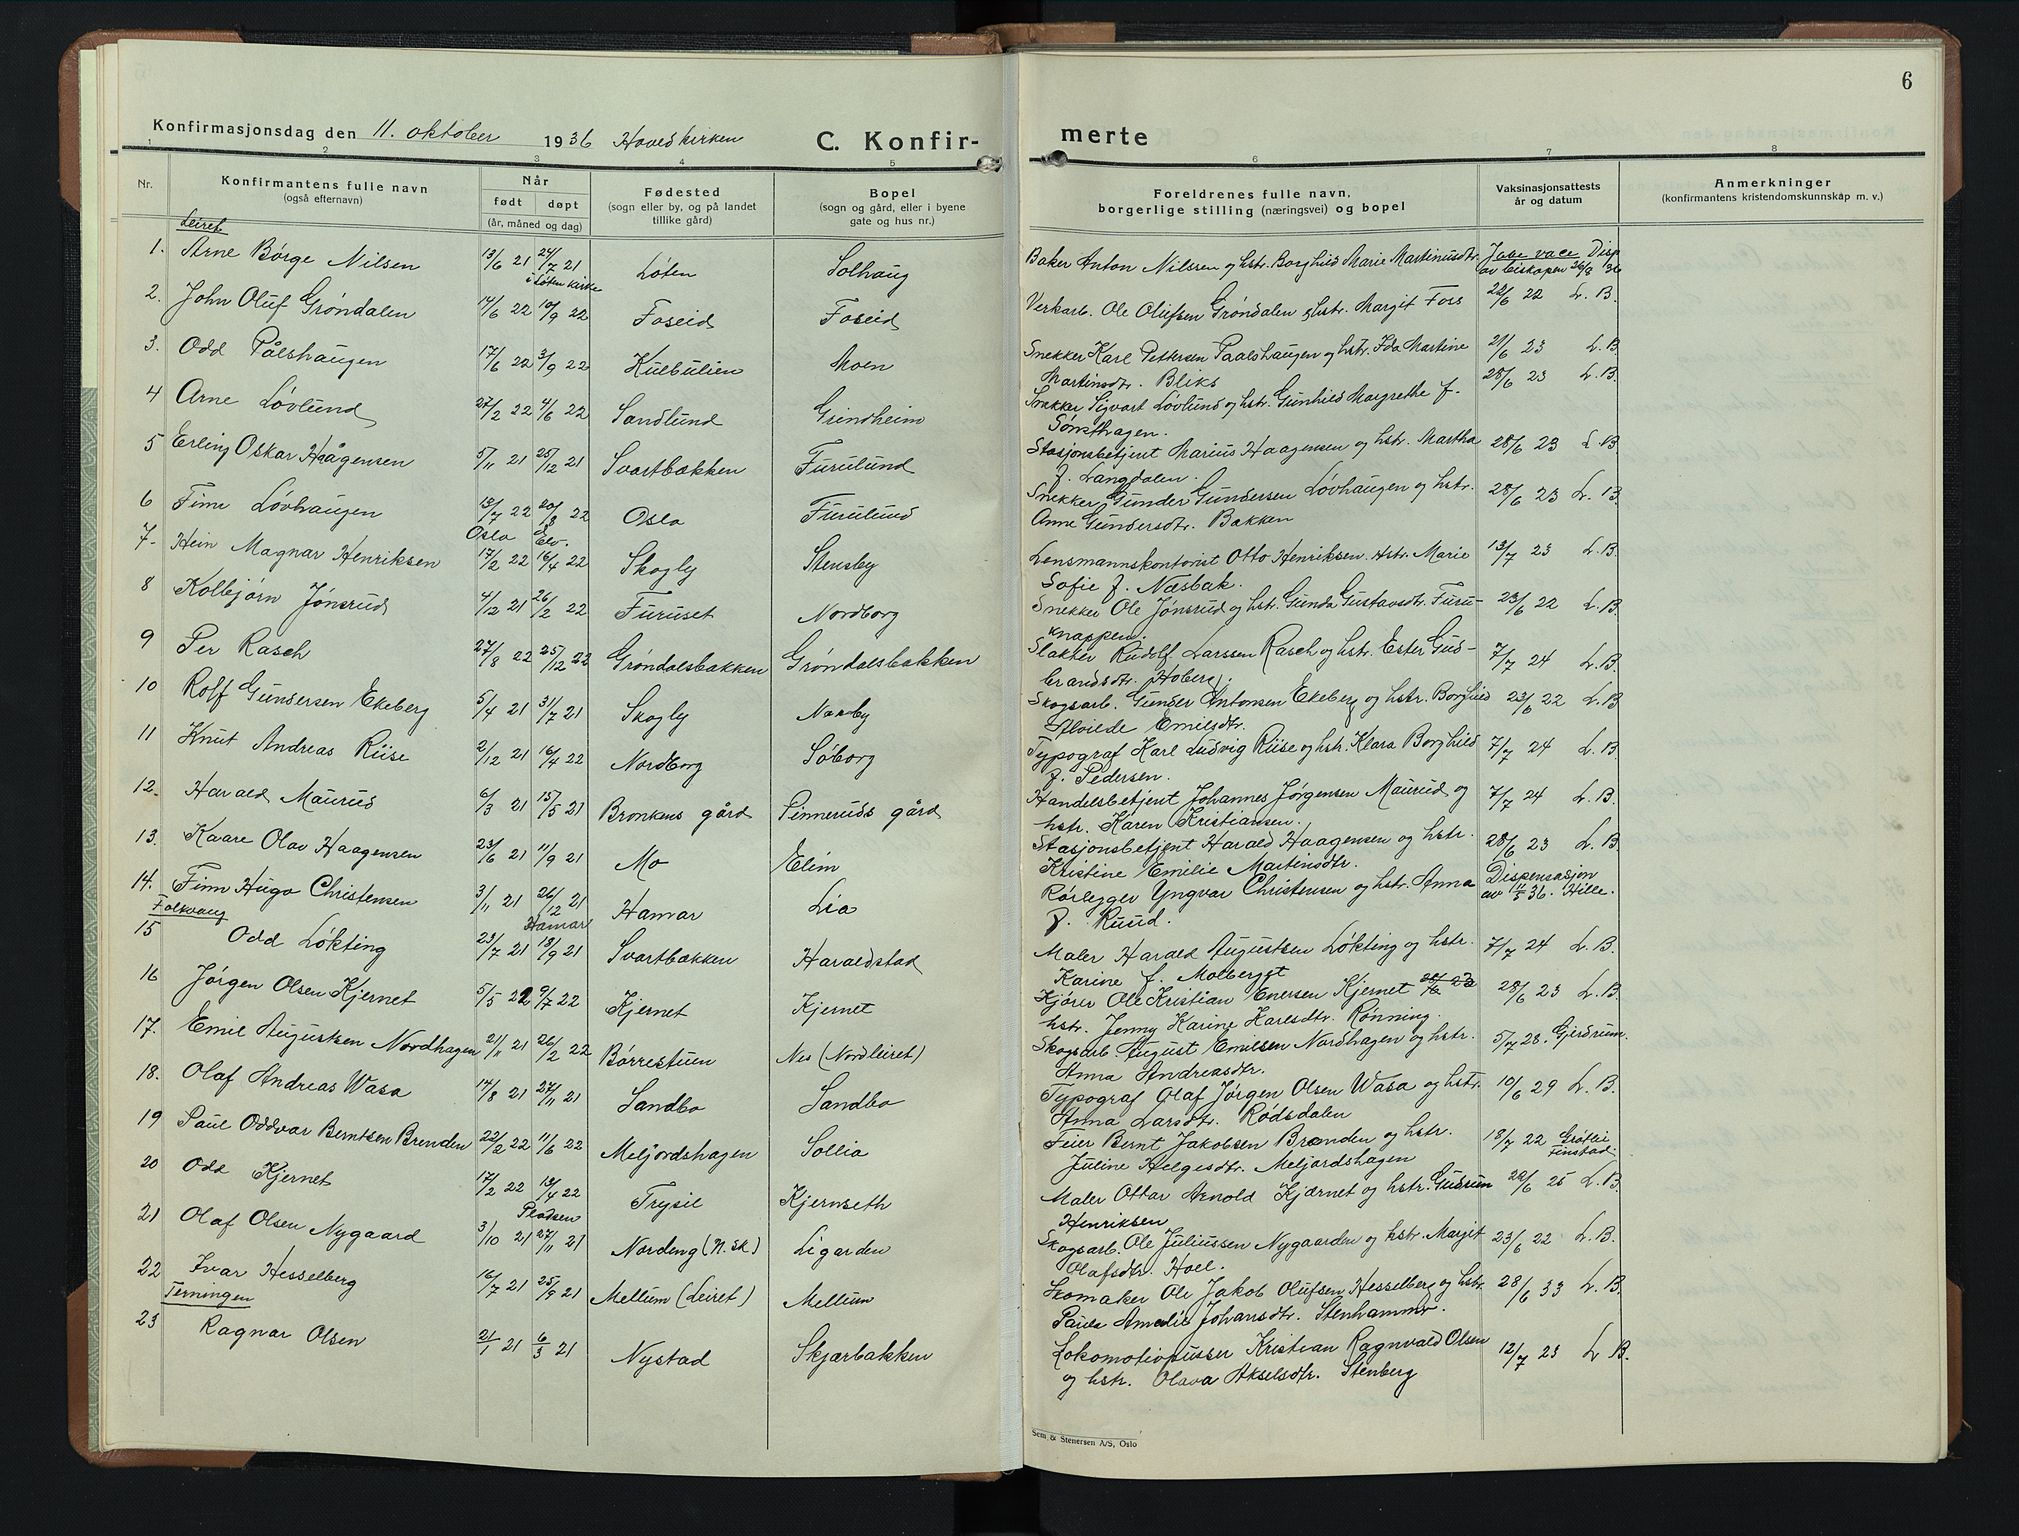 6
Konfirmasjonsdag den 11. oktober 1936 Hovedkirken C. Konfir-
merte
1 2 3 4 5 6 7 8
Nr.
Konfirmantens fulle navn
(også efternavn)
Når
født døpt
(år, måned og dag)
Fødested
(sogn eller by, og på landet
tillike gård)
Bopel
(sogn og gård, eller i byene
gate og hus nr.)
Foreldrenes fulle navn,
borgerlige stilling (næringsvei) og bopel
Vaksinasjonsattests
år og datum
Anmerkninger
(konfirmantens kristendomskunnskap m. v.)
Leiret
1. Arne Børge Nilsen 13/6 21 24/7 21 Løten Solhaug Baker Anton Nilssen og hstr. Borghild Marie Martinusdtr. Disp.
i Løten kirke av biskopen 26/8 36
2. John Oluf Grøndalen 14/6 22 10/9 22 Foseid Foseid Verkarb. Ole Olufsen Grøndalen og hstr. Margit Foss 22/6 22 L. B.
3. Odd Pålshaugen 17/6 22 3/9 22 Kulbulien Moen Snekker Karl Pettersen Paalshaugen og hstr. Ida Martine 21/6 23 L. B.
Martinsdtr. Bliks
4 Arne Løvlund 27/2 22 4/6 22 Sandlund Grindheim Snekker Sigvart Løvlund og hstr. Gunhild Margrethe f. 28/6 23 L. B.
Sønsthagen.
5 Erling Oskar Haagensen 5/11 21 25/12 21 Svartbækken Furulund Stasjonsbetjent Marius Haagensen og hstr. Martha 28/6 23 L. B.
f. Langdalen.
6 Finn Løvhaugen 13/7 22 20/8 22 Oslo Furulund Snekker Gunder Gundersen Løvhaugen og hstr. 28/6 23 L. B.
Oslo Elv. Anne Gundersdtr. Bakken
7. Hein Magnar Henriksen 17/2 22 16/4 22 Skogly Stensby Lensmannskontorist Otto Henriksen. Hstr. Marie 13/7 23 L. B.
Sofie f. Næsbak.
8 Kolbjørn Jønsrud 4/12 21 26/2 22 Furuset Nordborg Snekker Ole Jønsrud og hstr. Gunda Gustavsdtr. Furu- 23/6 22 L. B.
knappen.
9 Per Rasch 27/8 22 25/12 22 Grøndalsbakken Grøndalsbakken Slakter Rudolf Larssen Rasch og hstr. Ester Gud- 7/7 24 L. B.
brandsdtr. Hoberg.
10 Rolf Gundersen Ekeberg 5/4 21 31/7 21 Skogly Norby Skogsarb. Gunder Antonsen Ekeberg og hstr. Borghild 23/6 22 L. B.
Alvilde Emilsdtr.
11 Knut Andreas Riise 2/12 21 16/4 22 Nordborg Søborg Typograf Karl Ludvig Riise og hstr. Klara Borghild 7/7 24 L. B.
f. Pedersen.
12. Harald Maurud 6/3 21 15/5 21 Bronkens gård Pinneruds gård Handelsbetjent Johannes Jørgensen Maurud og 7/7 24 L. B.
hstr. Karen Kristiansen.
13. Kaare Olav Haagensen 23/6 21 11/9 21 Mo Elim Stasjonsbetjent Harald Haagensen og hstr. 28/6 23 L. B.
Kristine Emilie Martinsdtr.
14. Finn Hugo Christensen 3/11 21 26/12 21 Hamar Lia Rørlegger Yngvar Christensen og hstr. Anna Dispensasjon
Hamar f. Ruud. av 11/5 36. Hille.
Folkvang
15 Odd Løkting 23/7 21 18/9 21 Svartbækken Haraldstad Maler Harald Augustsen Løkting og hstr. 7/7 24 L. B.
Karine f. Molberget
16 Jørgen Olsen Kjernet 5/5 22 9/7 22 Kjernet Kjernet Kjører Ole Kristian Enersen Kjernet 28/6 23 L. B.
hstr. Jenny Karine Karlsdtr. Rønning.
17. Emil Augustsen Nordhagen 21/11 21 26/2 22 Børrestuen Nes (Nordleiret) Skogsarb August Emilsen Nordhagen og hstr. 5/7 28. Gjerdrum.
Anna Andreasdtr.
18. Olaf Andreas Wasa 14/8 21 27/11 21 Sandbo Sandbo Typograf Olaf Jørgen Olsen Wasa og hstr. 10/6 29 L. B.
Anna Larsdtr. Rødsdalen
19 Paul Oddvar Berntsen Brenden 22/2 22 11/6 22 Meljordshagen Sollia Feier Bernt Jakobsen Brænden og hstr. 18/7 22 Grøtli
Juline Helgesdtr. Meljordshagen Finstad
20 Odd Kjernet 17/2 22 13/4 22 Trysil Kjernseth Maler Ottar Arnold Kjærnet og hstr. Gudrun 22/6 25 L. B.
Pladsen Henriksen
21 Olaf Olsen Nygaard 3/10 21 27/11 21 Nordeng (N. Sk) Ligarden Skogsarb. Ole Juliussen Nygaarden og hstr. Margit 23/6 22 L. B.
Olafsdtr. Hoel.
22 Ivar Hesselberg 16/7 21 25/9 21 Mellum (Leiret) Mellum Skomaker Ole Jakob Olufsen Hesselberg og hstr. 28/6 33 L. B.
Paula Amalie Johansdtr. Stenhammer.
Terningen
23 Ragnar Olsen 21/1 21 6/3 21 Nystad Skjærbakken Lokomotivpusser Kristian Ragnvald Olsen 12/7 23 L B.
og hstr. Olava Akselsdtr. Stenberg
Sem & Stenersen A/S, Oslo